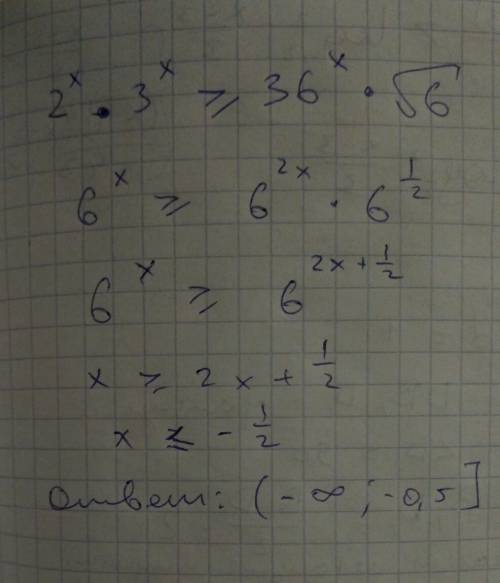 2^x · 3^x ≥ 36^x · √6
6^x ≥ 6^{2x} · 6^{1/2}
6^x ≥ 6^{2x + 1/2}
x ≥ 2x + 1/2
x ≤ - 1/2
ответ: (-∞; -0,5]